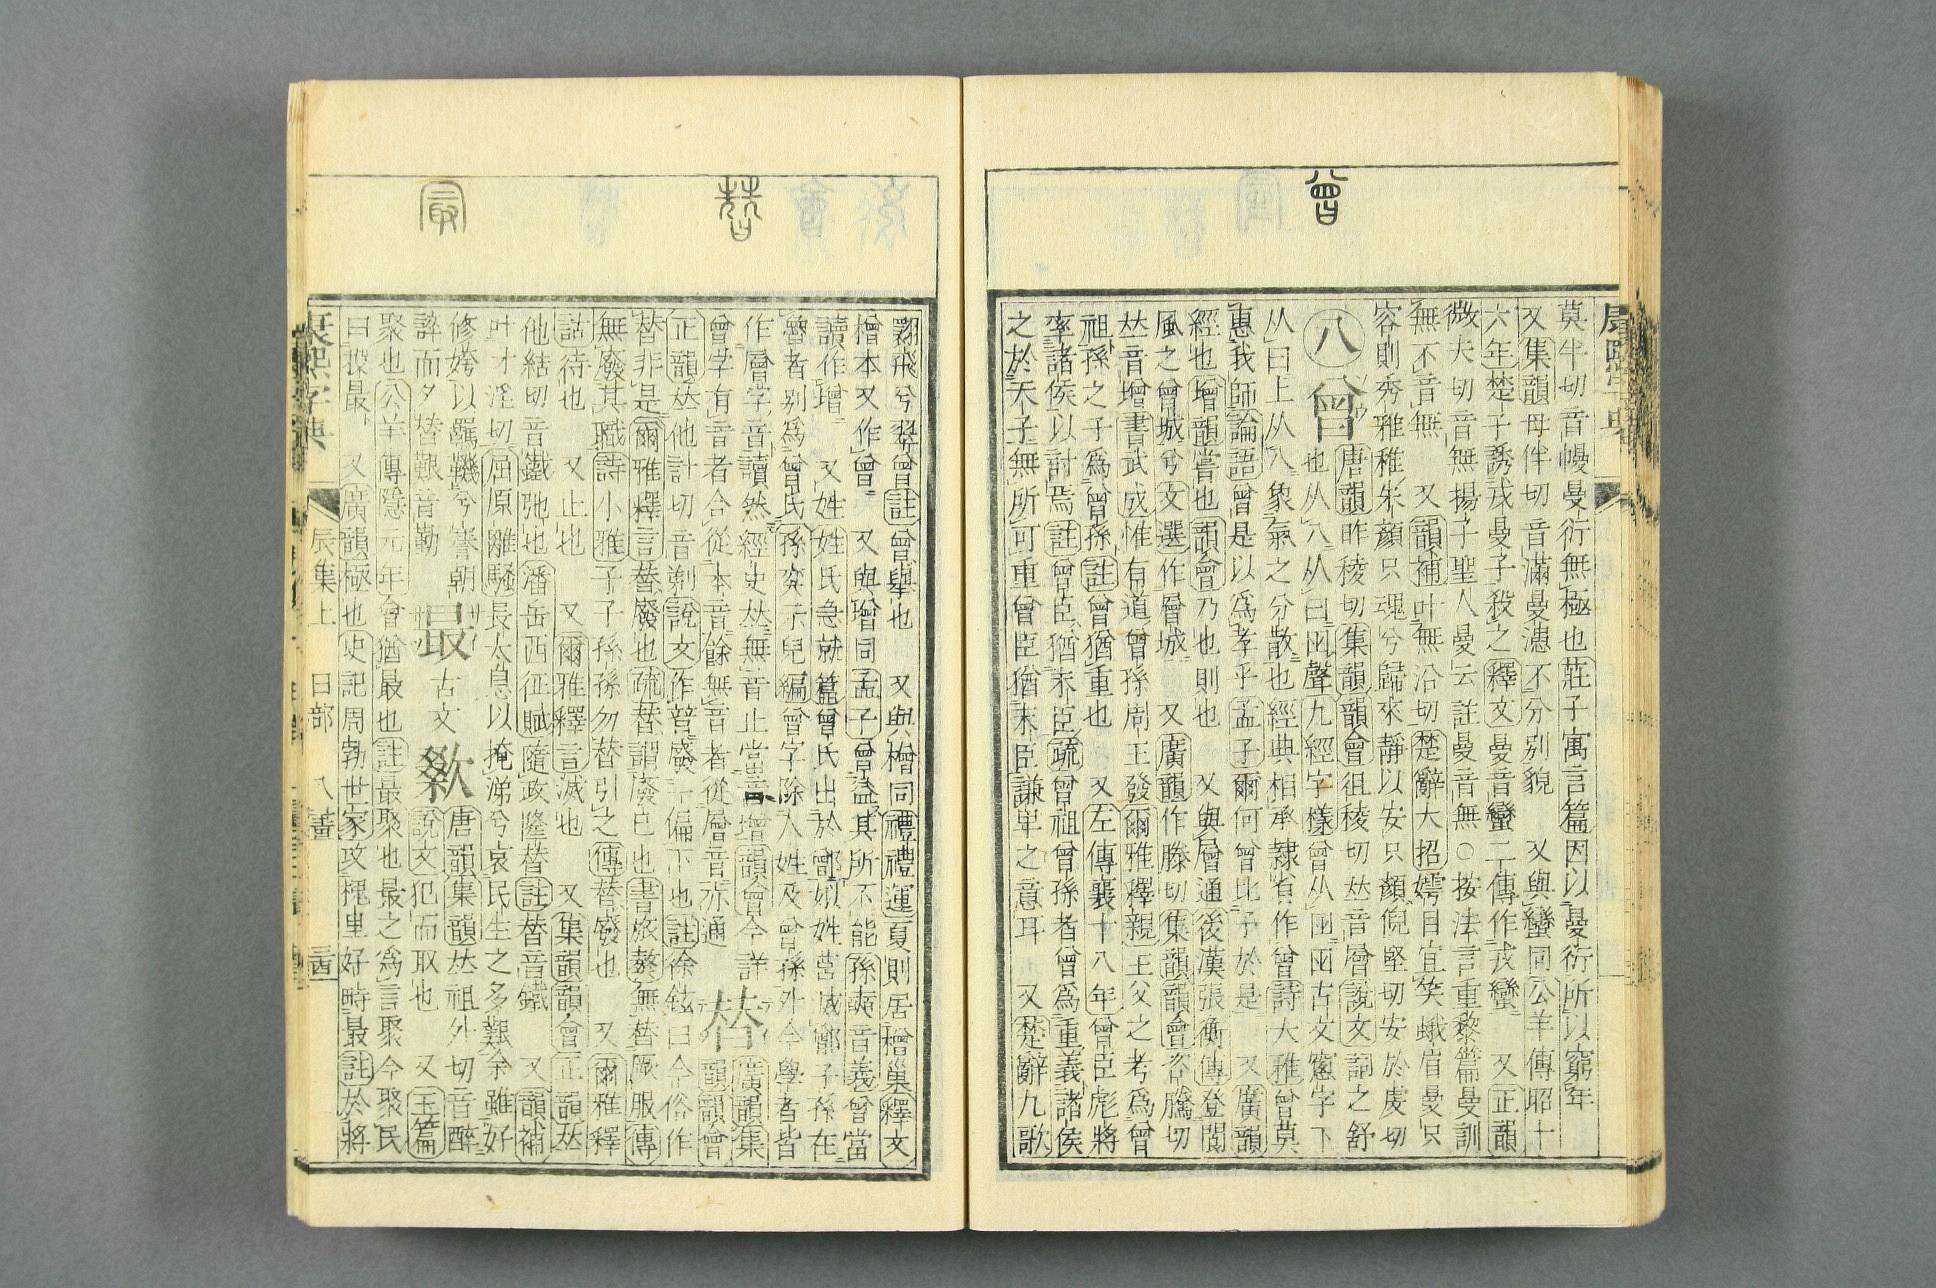 曾
莫半切音幔曼衍無極也莊子寓言篇因以曼衍所以窮年
又集韻母伴切音滿曼漶不分別貌　又與蠻同公羊傳昭十
六年楚子誘戎曼子殺之釋文曼音蠻二傳作戎蠻　又正韻
微夫切音無揚子聖人曼云註曼音無○按法言重黎篇曼訓
無不音無　又韻補叶無沿切楚辭大招嫮目宜笑蛾眉曼只
容則秀雅稚朱顏只魂兮歸來靜以安只顏倪堅切安於虔切
八 曾 唐韻昨稜切集韻韻會徂稜切𠀤音層說文詞之舒
也从八从曰囪聲九經字樣曾从囪囪古文窻字下
从曰上从八象氣之分散也經典相承隸省作曾詩大雅曾莫
惠我師論語曾是以爲孝乎孟子爾何曾比予於是　又廣韻
經也增韻嘗也韻會乃也則也　又與層通後漢張衡傳登閬
風之曾城兮文選作層城　又廣韻作滕切集韻韻會咨騰切
𠀤音增書武成惟有道曾孫周王發爾雅釋親王父之考爲曾
祖孫之子爲曾孫註曾猶重也　又左傳襄十八年曾臣彪將
率諸侯以討焉註曾臣猶末臣疏曾祖曾孫者曾爲重義諸侯
之於天子無所可重曾臣猶末臣謙卑之意耳　又楚辭九歌
替
最
翾飛兮翠曾註曾舉也　又與橧同禮禮運夏則居橧巢釋文
橧本又作曾　又與增同孟子曾益其所不能孫奭音義曾當
讀作增　又姓姓氏急就篇曾氏出於鄫姒姓莒滅鄫子孫在
魯者別爲曾氏孫奕示兒編曾字除人姓及曾孫外今學者皆
作層字音讀然經史𠀤無音止當音增韻會今詳
曾字有音者合從本音餘無音者從層音亦通　替 廣韻集
韻韻會
正韻𠀤他計切音剃說文作暜廢一偏下也註徐鉉曰今俗作
替非是爾雅釋言替廢也疏替謂廢已也書旅獒無替厥服傳
無廢其職詩小雅子子孫孫勿替引之傳替廢也　又爾雅釋
詁待也　又止也　又爾雅釋言滅也　又集韻韻會正韻𠀤
他結切音鐵弛也潘岳西征賦隨政隆替註替音鐵　又韻補
叶才淫切屈原離騷長太息以掩涕兮哀民生之多艱余雖好
修姱以鞿羈兮謇朝
誶而夕替艱音勤　最 古文 㝡 唐韻集韻𠀤祖外切音醉
說文犯而取也　又玉篇
聚也公羊傳隱元年會猶最也註最聚也最之爲言聚今聚民
曰投最　又廣韻極也史記周勃世家攻槐里好畤最註於將
康熙字典 辰集上　日部　八畫